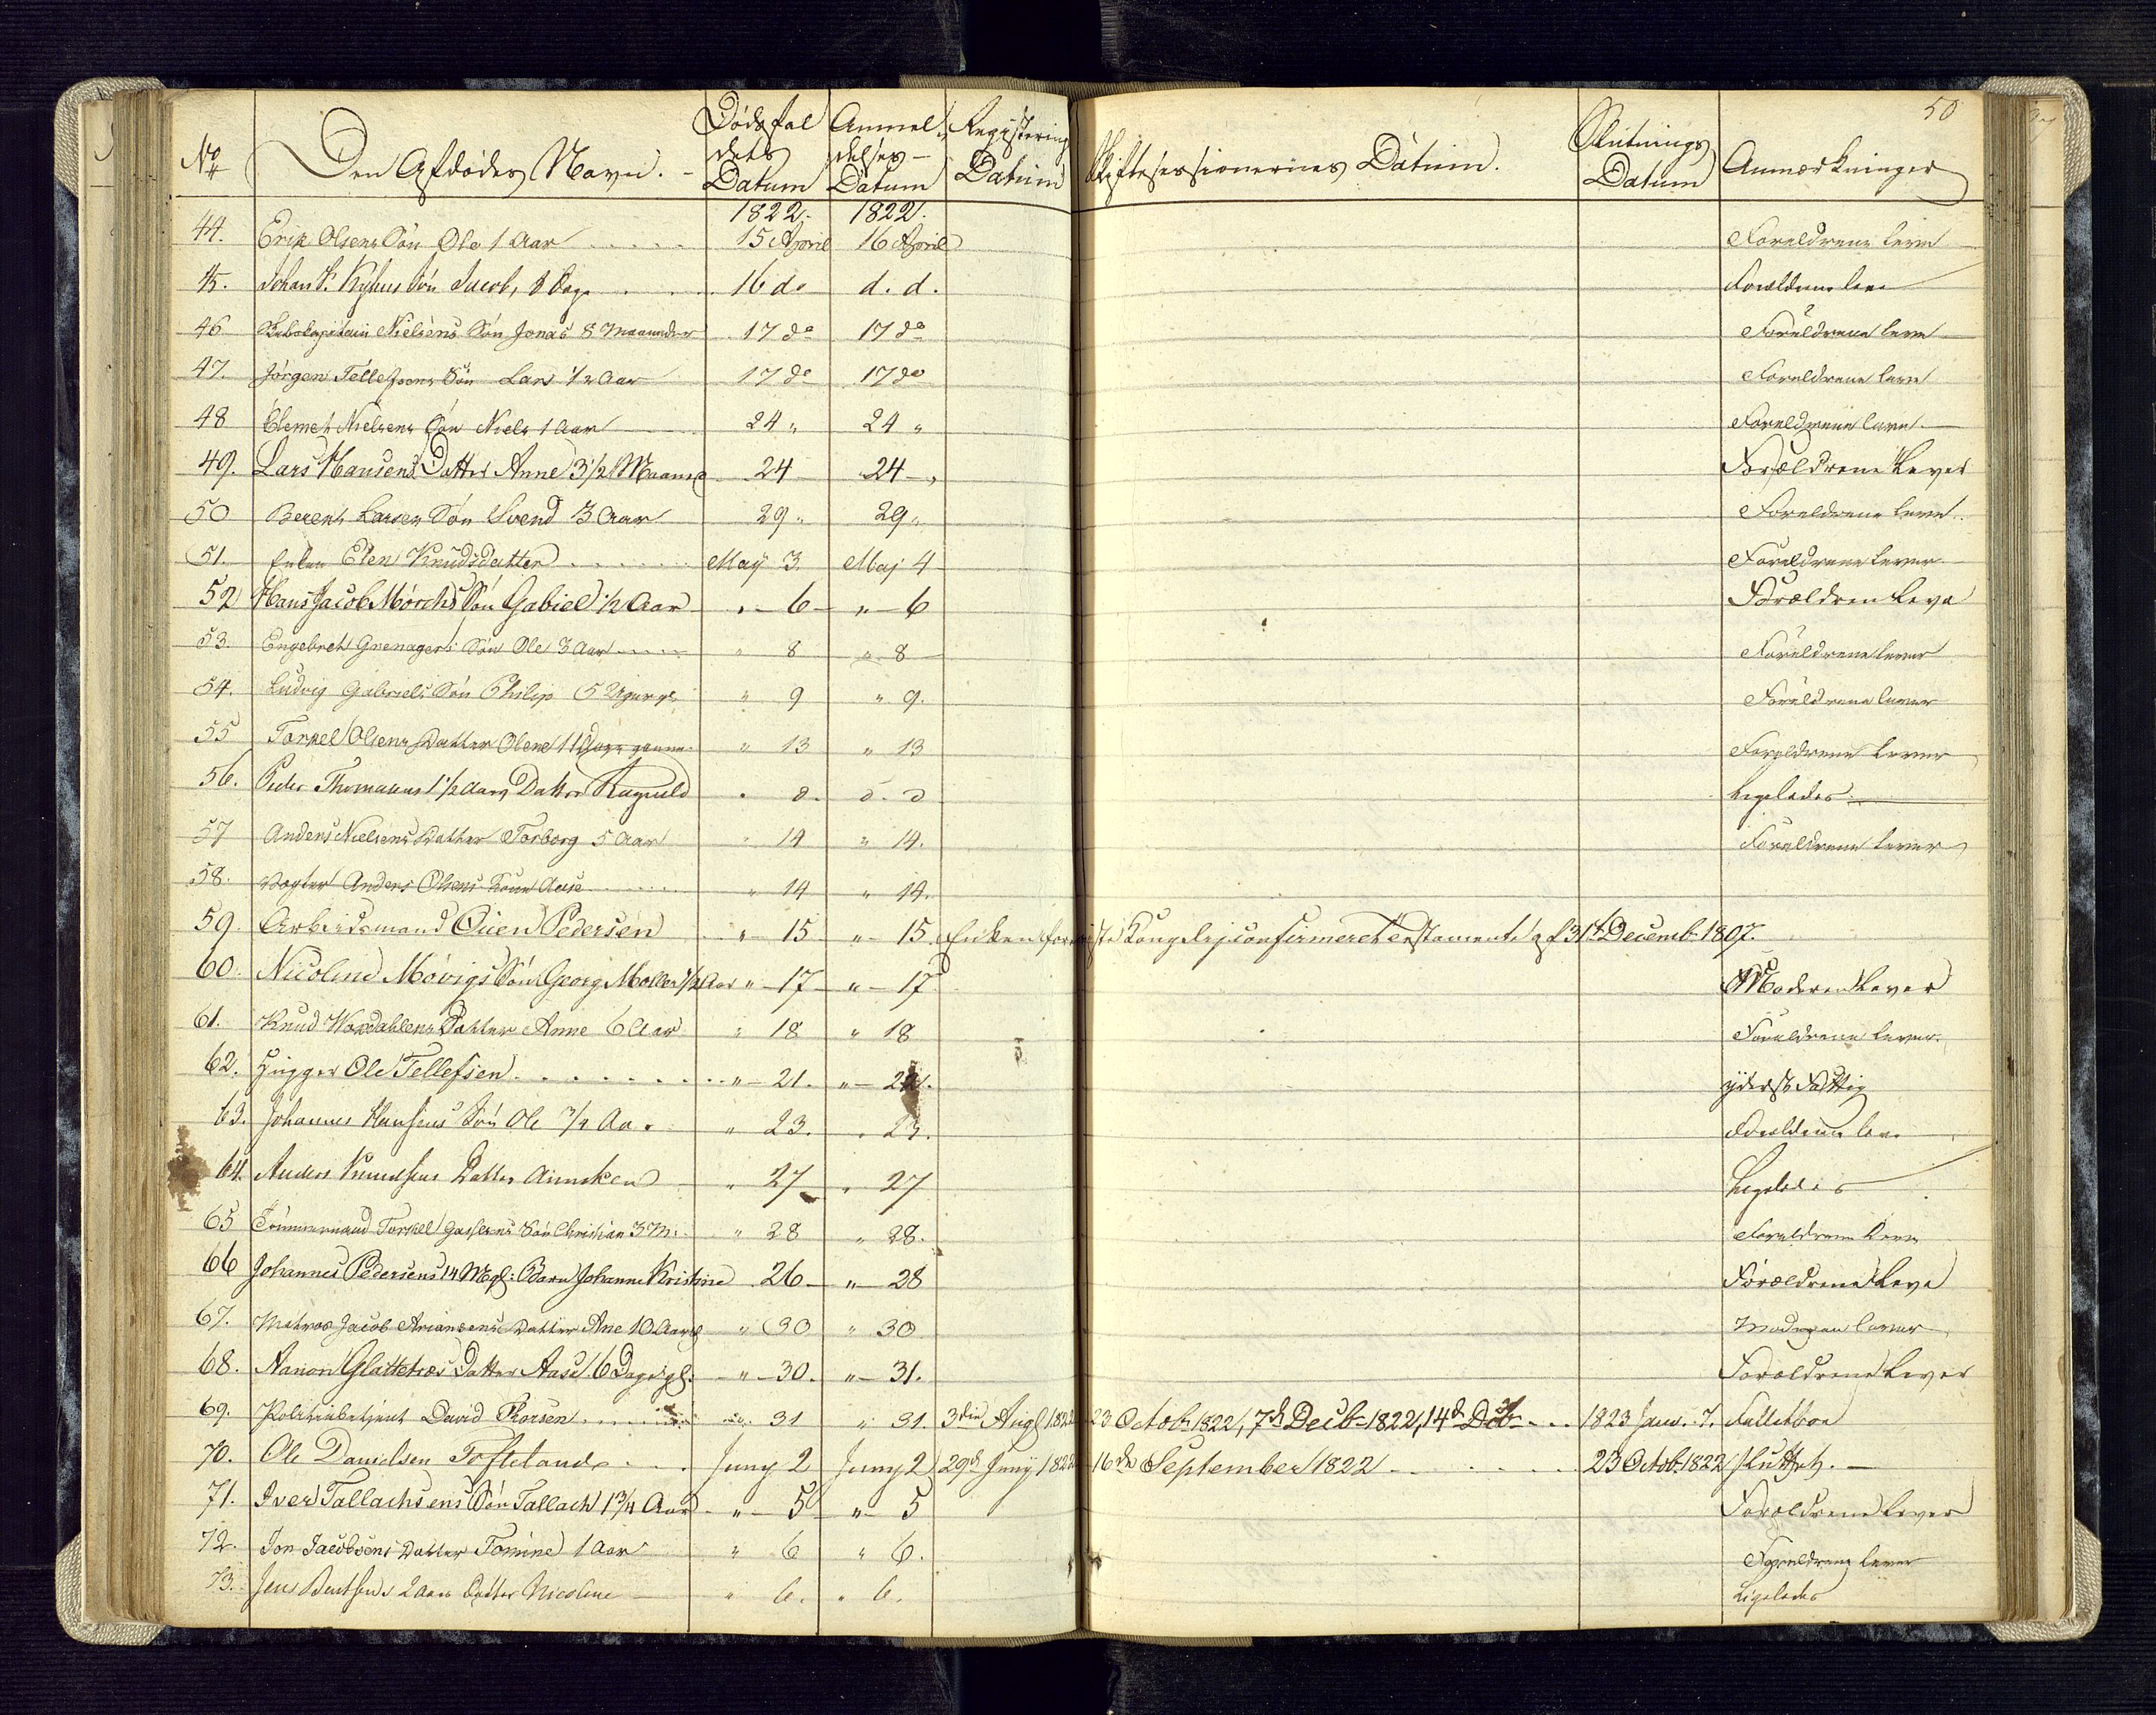 50
No Den Afdødes Navn. Dødsfal dets Datum Anmel delses Datum Registering Datum Skiftesessionernes Datum. Slutnings Datum Anmærkninger
1822. 1822.
44. Erik Olsens Søn Ole 1 Aar 15 April 16 April Foreldrene leve
45. Johan Søn Jacob, 8 Dage 16 do d. d. Forældrene leve
46 Nielsens Søn Jonas 8 Maaneder 17 do 17 do Foreldrene leve
47. Jørgen Tellefsens Søn Lars 1/2 Aar 17 do 17 do Foreldrene leve
48 Clemet Nielsens Søn Niels 1 Aar 24 " 24 " Foreldrene leve.
49. Lars Hansens Datter Anne 3 1/2 Maaned 24 24 " Forældrene Lever
50 Berent Larsens Søn Svend 3 Aar 29 " 29 " Foreldrene leve.
51. Enken Elen Knudsdatter May 3. Maj 4 Foreldrene lever
52 Hans Jacob Mørchs Søn Gabiel 1/2 Aar " 6 " 6 Forældren Leve
53. Engebret Grenagers Søn Ole 3 Aar " 8 " 8 Foreldrene lever
54. Ludvig Gabriels Søn Philip 5 " 9 " 9. Foreldrene lever
55 Torkel Olsens Datter Olene 11 " 13 " 13 Foreldrene lever
56. Peder Thomasens 1 1/2 Aars Datter Ragnild " d. d. d Ligeledes
57 Anders Nielsens Datter Torborg 5 Aar " 14 " 14. Foreldrene lever
58. Vægter Anders Olsens Kone Aase " 14 " 14.
59. Arbeidsmand Ouen Pedersen " 15 " 15. Enken foreviiste Kongelig confirmeret testamente af 31te Decemb. 1807.
60. Nicoline Møvigs Søn Georg Møller 1/2 Aar " 17 " 17 Moderen Lever
61. Knud Datter Anne 6 Aar " 18 " 18 Foreldrene lever.
62. Hugger Ole Tellefsen " 21. " yderst Fattig
63. Johannes Hansens Søn Ole 3/4 Aa. " 23. " 23. Forældrene leve
64. Anders Knudsens Datter " 27 " 27 Ligeledes
65 Tømmermand Torkel Søn Christian 3 M: " 28 " 28. Foreldrene leve
66 Johannes Pedersens 14 Mgl: Barn Johanne Kristine 26 " 28 Forældrene Leve
67. Matros Jacob Ariansens Datter Ane 10 Aar " 30 " 30 Moderen lever
68. Aanon Glattetres Datter Aase 6 Dage gl. " 30. " 31. Forældrene Lever
69. Politiebetjent David Thorsen " 31 " 31. 3die Augl 1822 23 Octob 1822, 7de Decb 1822, 14de Do 1823 Janv. 7. Fallitboe
70. Ole Danielsen Tofteland Juny 2 Juny 2 29de Juny 1822 16de September 1822 23 Octob. 1822 sluttet.
71. Iver Tallachsens Søn Tallach 1 3/4 Aar " 5 " 5 Forældrene Lever
72. Jon Jacobsens Datter Tomine 1 Aar " 6 " 6. Foreldrene lever
73. Jens Bentsens 2 Aars Datter Nicoline " 6. " 6. Ligeledes